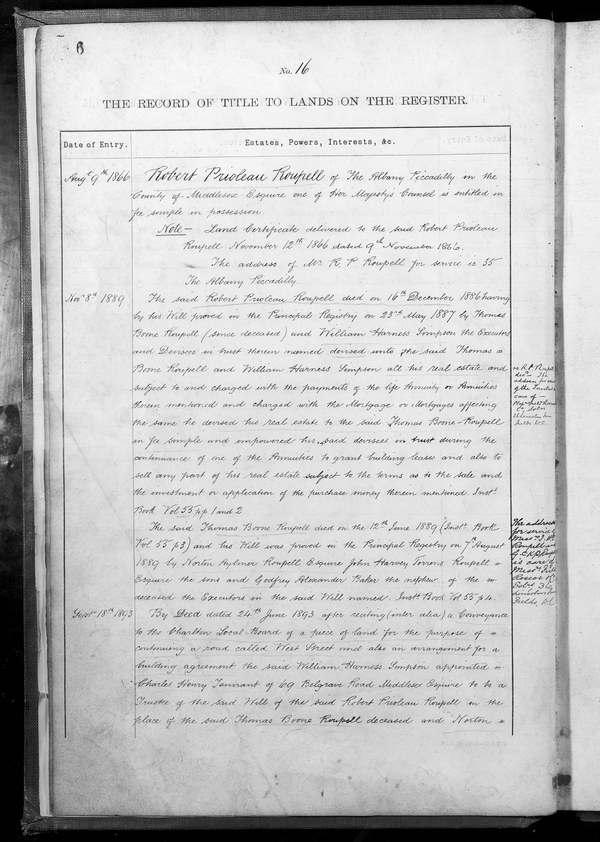 6
No. 16
THE RECORD OF TITLE TO LANDS ON THE REGISTER.
Date of Entry.
Estates, Powers, Interests, &c.
Augt 9th 1866
Robert Prioleau Roupell of The Albany Piccadilly in the
County of Middlesex Esquire one of Her Majesty's Counsel is entitled in
fee simple in possession
Note - Land Certificate delivered to the said Robert Prioleau
Roupell November 12th 1866 dated 9th November 1866.
The address of Mr R. P. Roupell for service is 35
The Albany Piccadilly
Novr 8th 1889
The said Robert Prioleau Roupell died on 16th December 1886 having
by his Will proved in the Principal Registry on 23rd May 1887 by Thomas
Boone Roupell (since deceased) and William Harness Simpson the Executors
and Devisees in trust therein named devised unto the said Thomas
Boone Roupell and William Harness Simpson all his real estate and
subject to and charged with the payments of the life Annuity or Annuities
therein mentioned and charged with the Mortgage or Mortgages affecting
the same he devised his real estate to the said Thomas Boone Roupell
in fee simple and empowered his said devisees in trust during the
continuance of one of the Annuities to grant building leases and also to
sell any part of his real estate subject to the terms as to the sale and
the investment or application of the purchase money therein mentioned. Inst.
Book Vol 55 pp 1 and 2
The said Thomas Boone Roupell died on the 12th June 1889 (Inst. Book
Vol 55 p3) and his Will was proved in the Principal Registry on 7th August
1889 by Norton Aylmer Roupell Esquire John Harvey Torrens Roupell
Esquire the sons and Godfrey Alexander Baker the nephew of the
deceased the Executors in the said Will named. Inst. Book Vol 55 p4.
The address
for service
Roupell
is care of
Messrs
Roscoe
Fields
Septr 18th 1893
By Deed dated 24th June 1893 after reciting (inter alia) a Conveyance
to the Charlton Local Board of a piece of land for the purpose of
continuing a road called West Street and also an arrangement for a
building agreement the said William Harness Simpson appointed
Charles Henry Tennant of 69 Belgrave Road Middlesex Esquire to be a
Trustee of the said Will of the said Robert Prioleau Roupell in the
place of the said Thomas Boone Roupell deceased and Norton